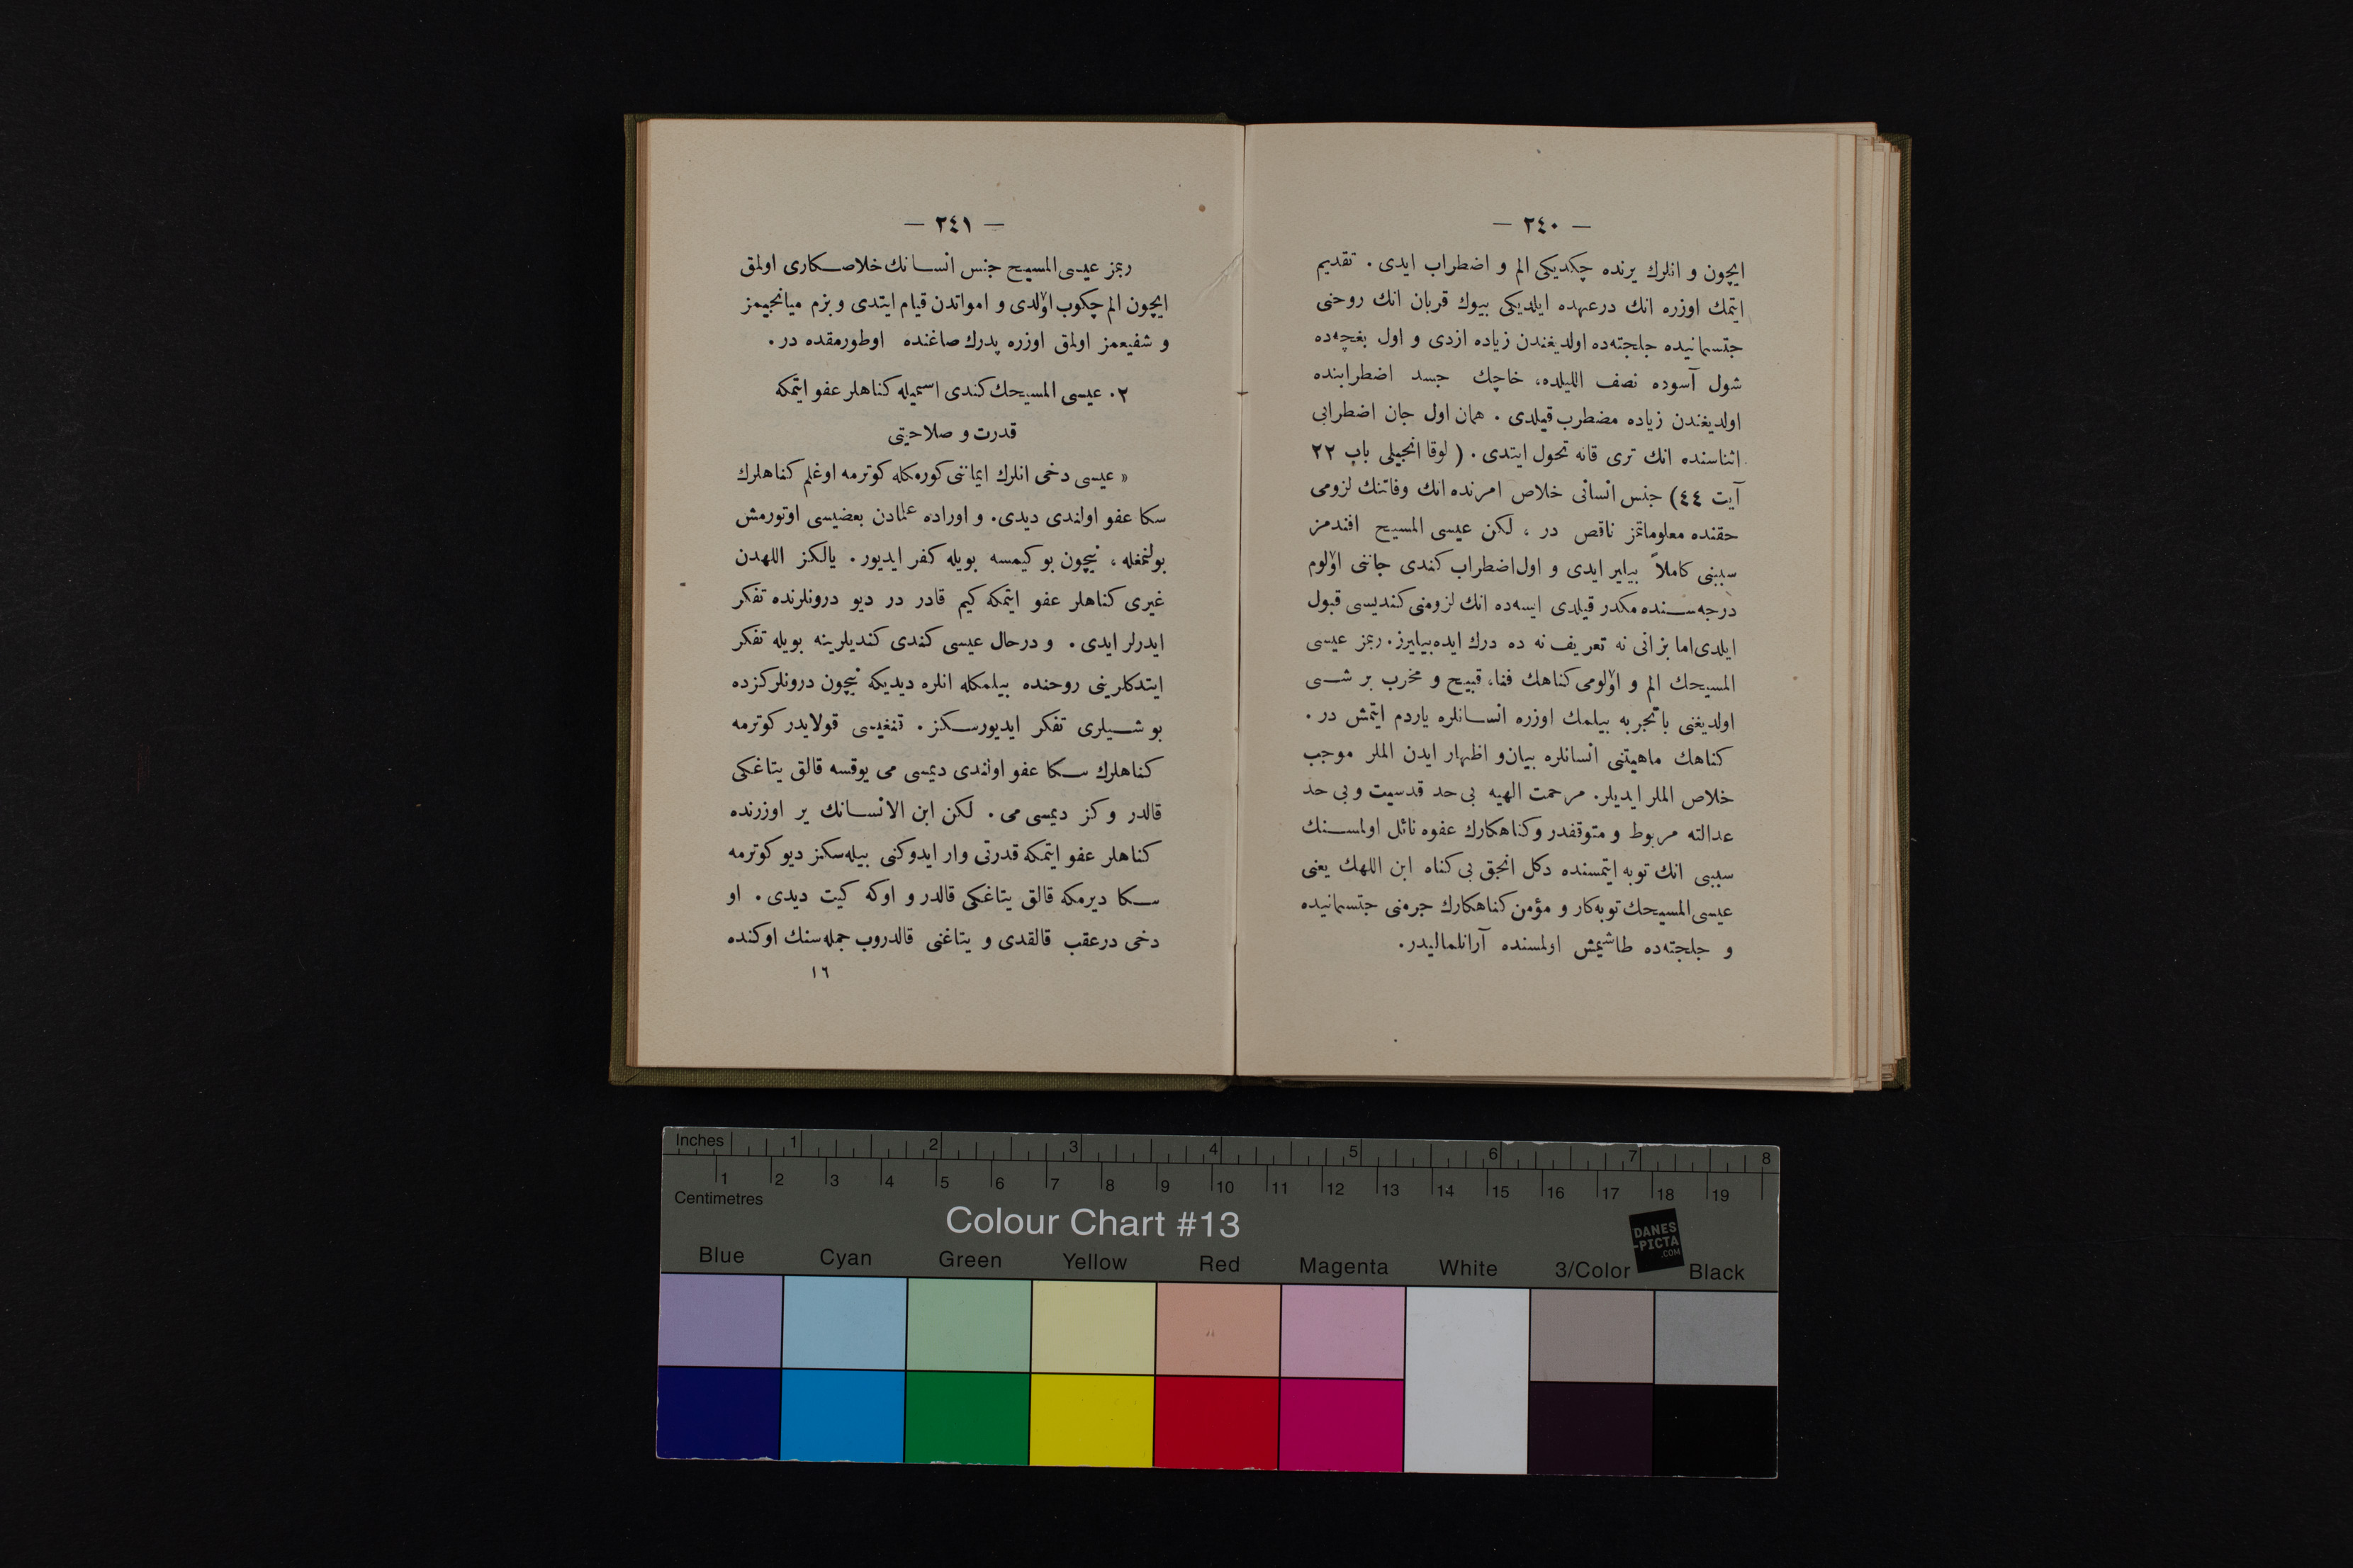 — ٢٤٠ —
ایچون و انلرك یرنده چكدیكی الم و اضطراب ایدی . تقدیم
ایتمك اوزره انك درعهده ایلدیكی بیوك قربان انك روحنی
جتسمانیده جلجته‌ده اولدیغندن زیاده ازدی و اول بغچه‌ده
شول آسوده نصف اللیلده، خاچك جسد اضطرابنده
اولدیغندن زیاده مضطرب قیلدی . همان اول جان اضطرابی
اثناسنده انك تری قانه تحول ایتدی . ( لوقا انجیلی باب ٢٢
آیت ٤٤) جنس انسانی خلاص امرنده انك وفاتنك لزومی
حقنده معلوماتمز ناقص در ، لكن عیسی المسیح افندمز
سببنی كاملاً بیلیر ایدی و اول اضطراب كندی جاننی اولوم
درجه‌سنده مكدر قیلدی ایسه‌ده انك لزومنی كندیسی قبول
ایلدی اما بز انی نه تعریف نه ده درك ایده بیلیرز. ربمز عیسی
المسیحك الم و اولومی كناهك فنا، قبیح و مخرب بر شی
اولدیغنی باتجربه بیلمك اوزره انسانلره یاردم ایتمش در .
كناهك ماهیتنی انسانلره بیان و اظهار ایدن الملر موجب
خلاص الملر ایدیلر. مرحمت الهیه بی حد قدسیت و بی حد
عدالته مربوط و متوقفدر و كناهكارك عفوه نائل اولمسنك
سببی انك توبه ایتمسنده دكل انجق بی كناه ابن اللهك یعنی
عیسی المسیحك توبه‌كار و مؤمن كناهكارك جرمنی جتسمانیده
و جلجته‌ده طاشیمش اولمسنده آرانلمالیدر.
— ٢٤١ —
ربمز عیسی المسیح جنس انسانك خلاصكاری اولمق
ایچون الم چكوب اولدی و امواتدن قیام ایتدی و بزم میانجیمز
و شفیعمز اولمق اوزره پدرك صاغنده اوطورمقده در .
٢. عیسی المسیحك كندی اسمیله كناهلر عفو ایتمكه
قدرت و صلاحیتی
« عیسی دخی انلرك ایماننی كورمكله كوترمه اوغلم كناهلرك
سكا عفو اولندی دیدی. و اوراده علمادن بعضیسی اوتورمش
بولنمغله ، نیچون بو كیمسه بویله كفر ایدیور . یالكز اللهدن
غیری كناهلر عفو ایتمكه كیم قادر در دیو درونلرنده تفكر
ایدرلر ایدی . و درحال عیسی كندی كندیلرینه بویله تفكر
ایتدكلرینی روحنده بیلمكله انلره دیدیكه نیچون درونلركزده
بو شیلری تفكر ایدیورسكز . تنغیسی قولایدر كوترمه
كناهلرك سكا عفو اولندی دیمسی می یوقسه قالق یتاغكی
قالدر و كز دیمسی می . لكن ابن الانسانك یر اوزرنده
كناهلر عفو ایتمكه قدرتی وار ایدوكنی بیله‌سكز دیو كوترمه
سكا دیرمكه قالق یتاغكی قالدر و اوكه كیت دیدی . او
دخی درعقب قالقدی و یتاغنی قالدروب جمله‌سنك اوكنده
١٦
Inches 1 2 3 4 5 6 7 8
1 2 3 4 5 6 7 8 9 10 11 12 13 14 15 16 17 18 19
Centimetres
Colour Chart #13
DANES
-PICTA
.COM
Blue Cyan Green Yellow Red Magenta White 3/Color Black